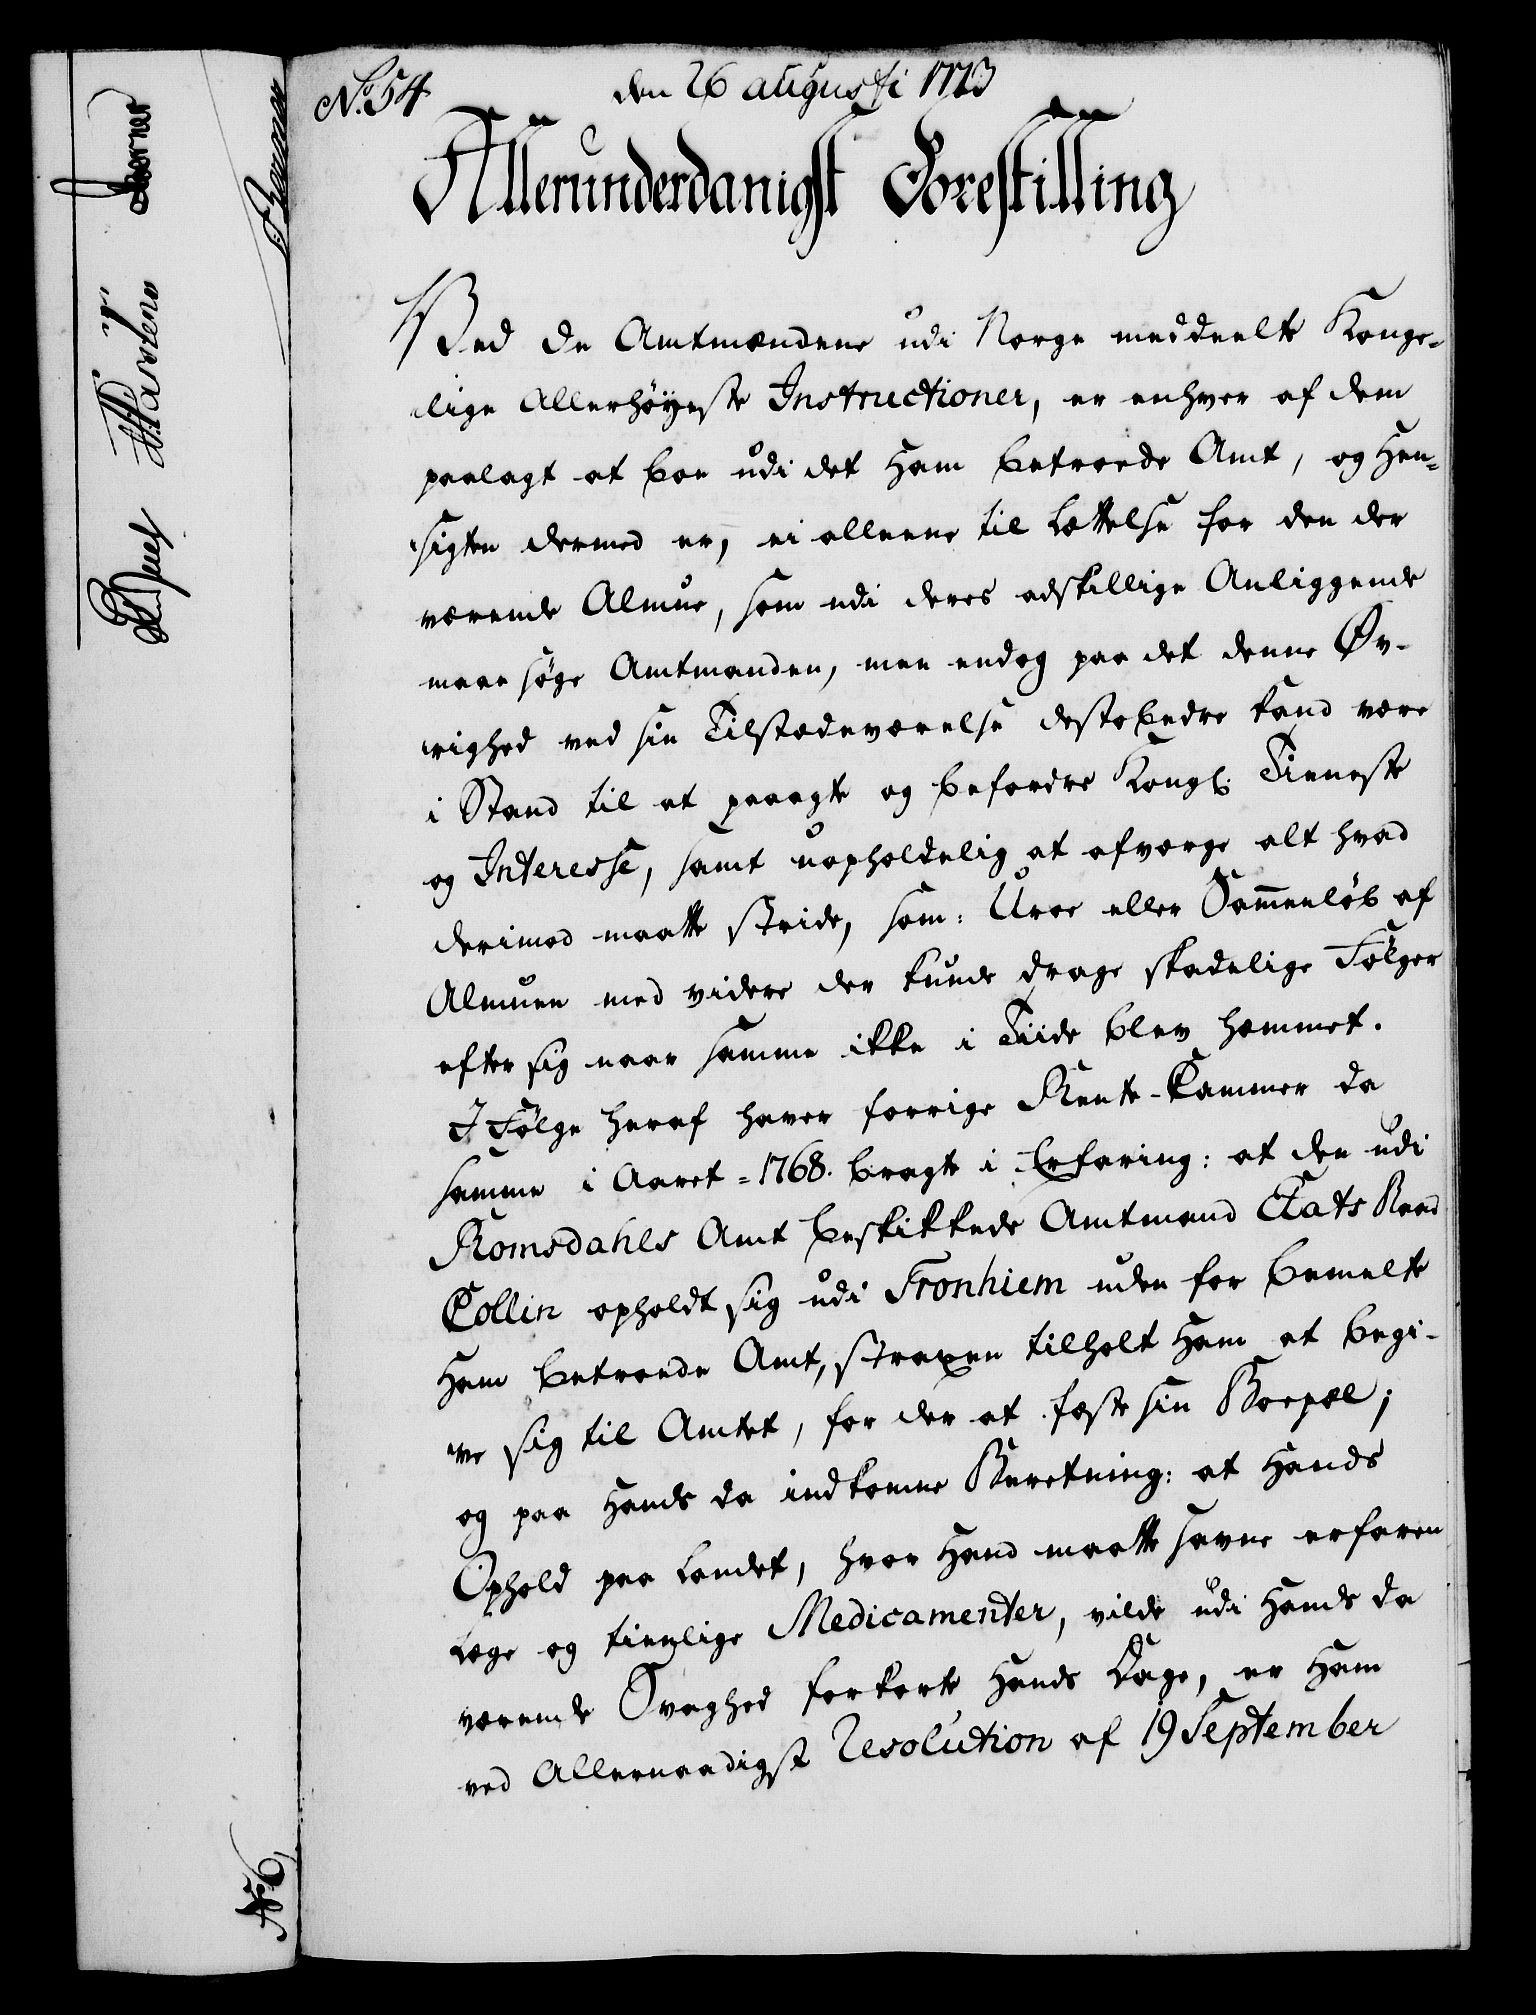 No. 54
den 26 augusti 1773
Allerunderdanigst Forestilling
Ved de Amtmændene udi Norge meddeelte Konge-
lige Allerhøyeste Instructioner, er enhver af dem
paalagt at boe udi det Ham betroede Amt, og Hen-
sigten dermed er, ei alleene til Lættelse for den der
værende Almue, som udi deres adskillige Anliggende
maae søge Amtmanden, men endog paa det denne Øv-
righed ved sin Tilstædeværelse destobedre kand være
i Stand til at paaagte og befordre Kongl. Tieneste
og Interesse, samt uopholdelig at afværge alt hvad
derimod maatte stride, som: Uroe eller Sammenløb af
Almuen med videre der kunde drage skadelige Følger
efter sig naar samme ikke i Tiide blev hæmmet.
I Følge heraf haver forrige Rente-Kammer da
samme i Aaret = 1768. bragte i Erfaring: at den udi
Romsdahls Amt beskikkede Amtmand Etats Raad
Collin opholdt sig udi Tronhiem uden for bemelte
Ham betroede Amt, straxen tilholt Ham at begi-
ve sig til Amtet, for der at fæste sin Boepæl;
og paa Hands da indkomne Beretning: at Hands
Ophold paa Landet, hvor Hand maatte savne erfaren
Læge og tienlige Medicamenter, vilde udi Hands da
værende Svaghed forkorte Hands Dage, er Ham
ved Allernaadigst Resolution af 19 September